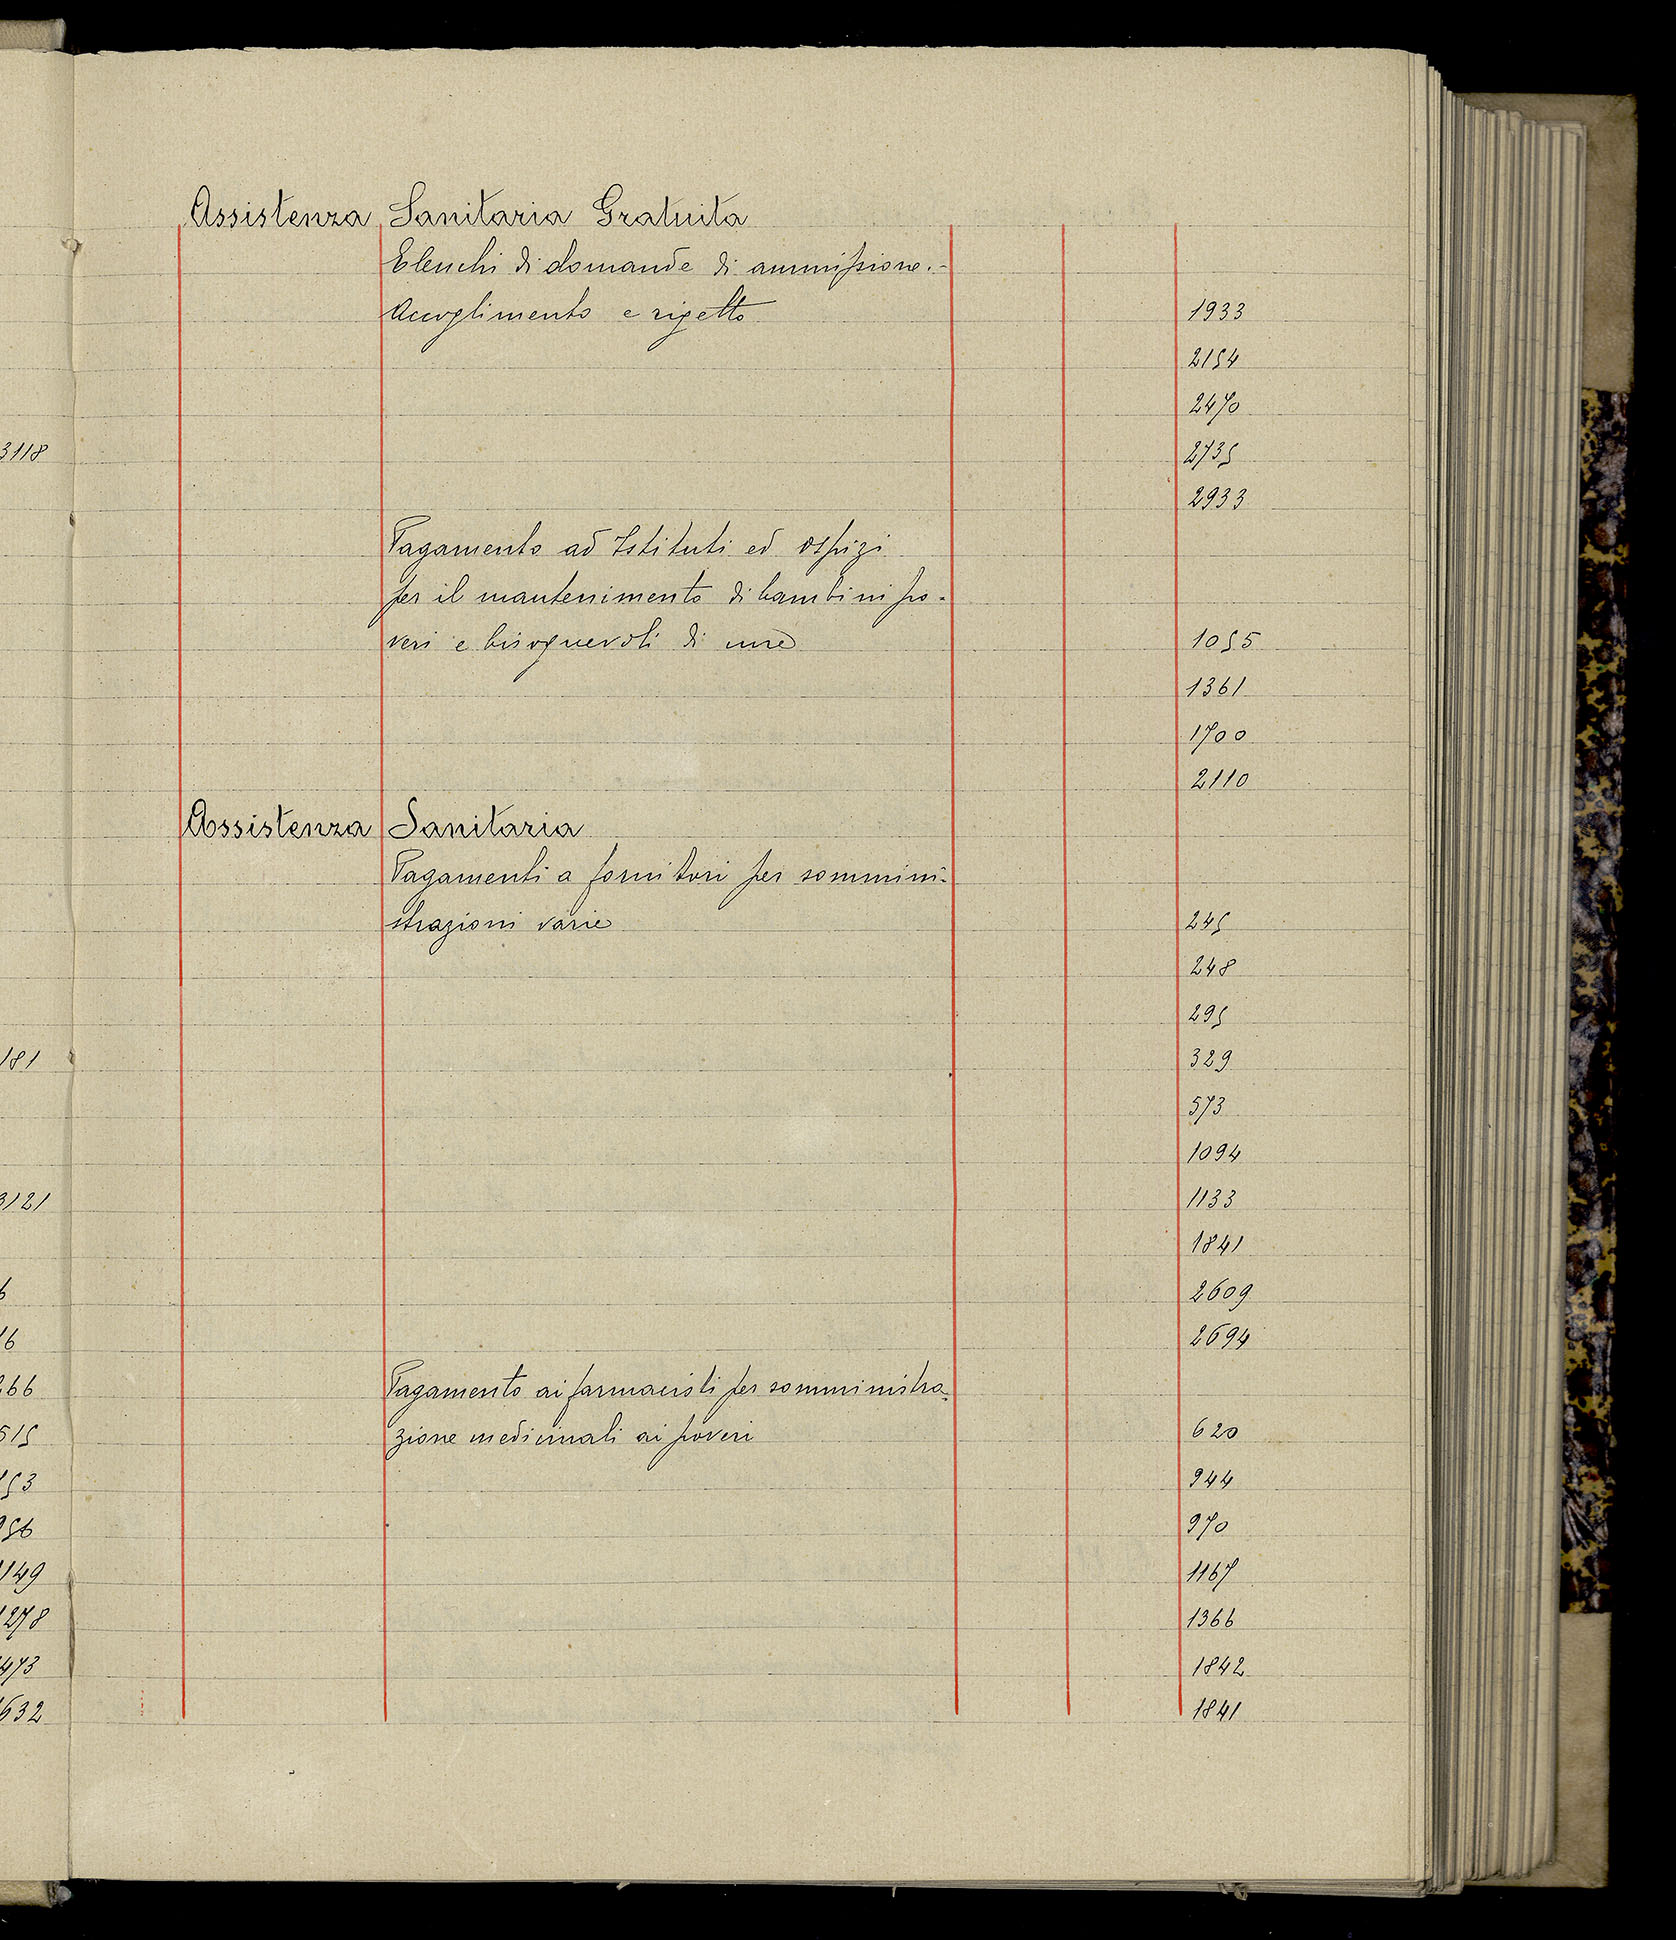 Assistenza Sanitaria Gratuita
Elenchi di domande di ammissione.-
Accoglimento e rigetto 1933
2154
2470
2735
2933
Pagamento ad Istituti ed ospizi
per il mantenimento di bambini po-
veri e bisognevoli di cure 1055
1361
1700
2110
Assistenza Sanitaria
Pagamenti a fornitori per sommini-
strazioni varie 245
248
295
329
573
1094
1133
1841
2609
2694
Pagamento ai farmacisti per somministra-
zione medicinali ai poveri 620
944
970
1167
1366
1842
1841
3118
181
3121